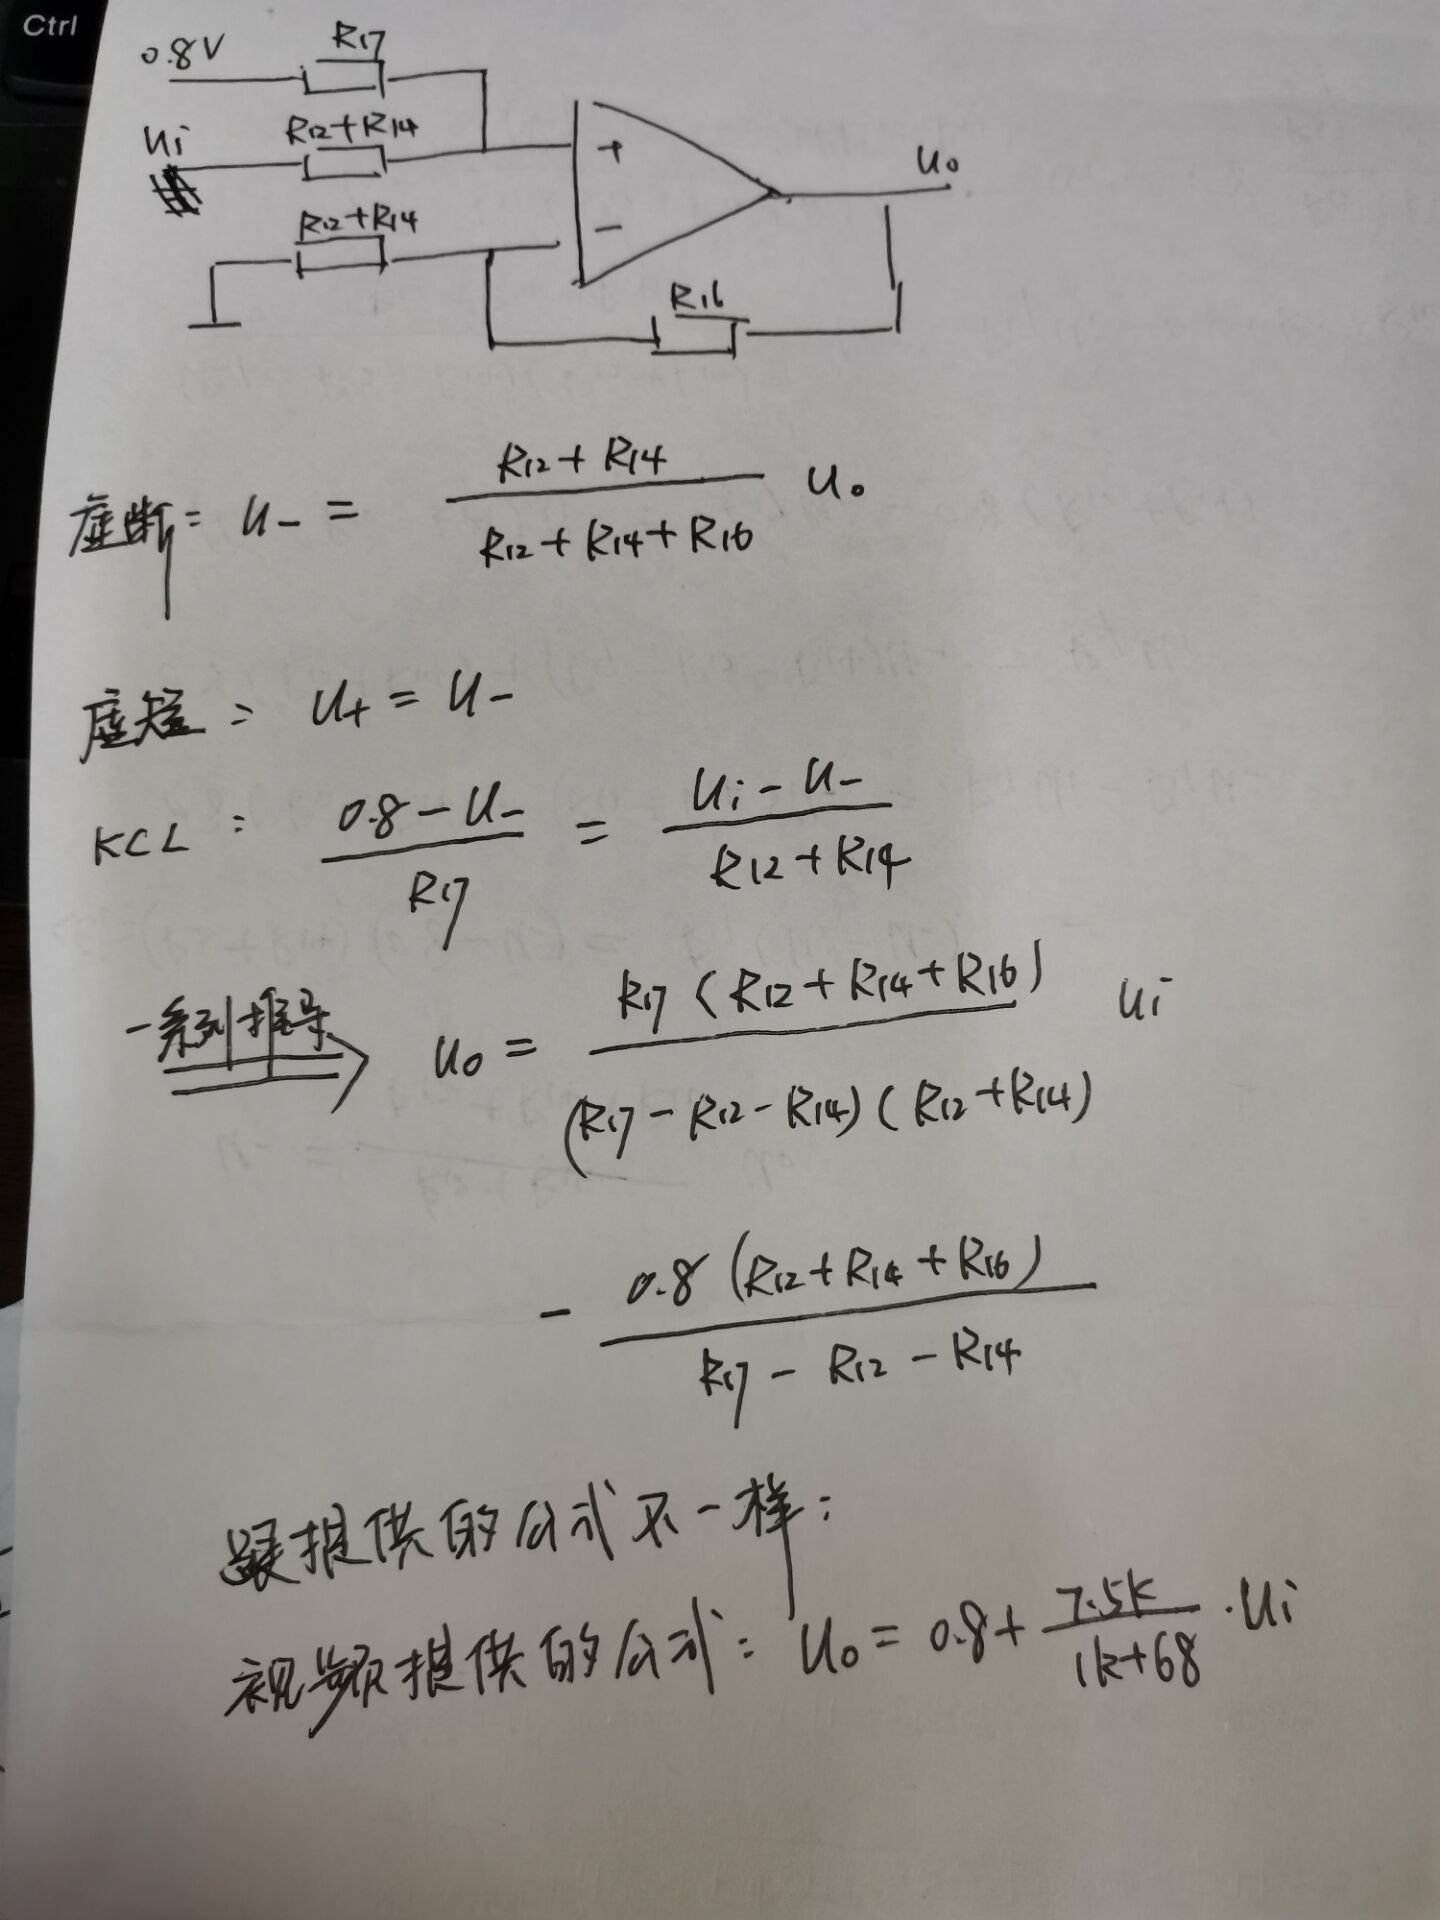 Ctrl
0.8V
R17
Ui
R12+R14
+
U0
R12+R14
-
R16
虚断: U- = (R12+R14)/(R12+R14+R16) U0
虚短: U+ = U-
KCL: (0.8-U-)/R17 = (Ui-U-)/(R12+R14)
一系列推导 ⇒ U0 = R17(R12+R14+R16)/((R17-R12-R14)(R12+R14)) Ui
- 0.8(R12+R14+R16)/(R17-R12-R14)
跟提供的公式不一样:
视频提供的公式: U0 = 0.8+ 7.5k/(1k+68) ·Ui